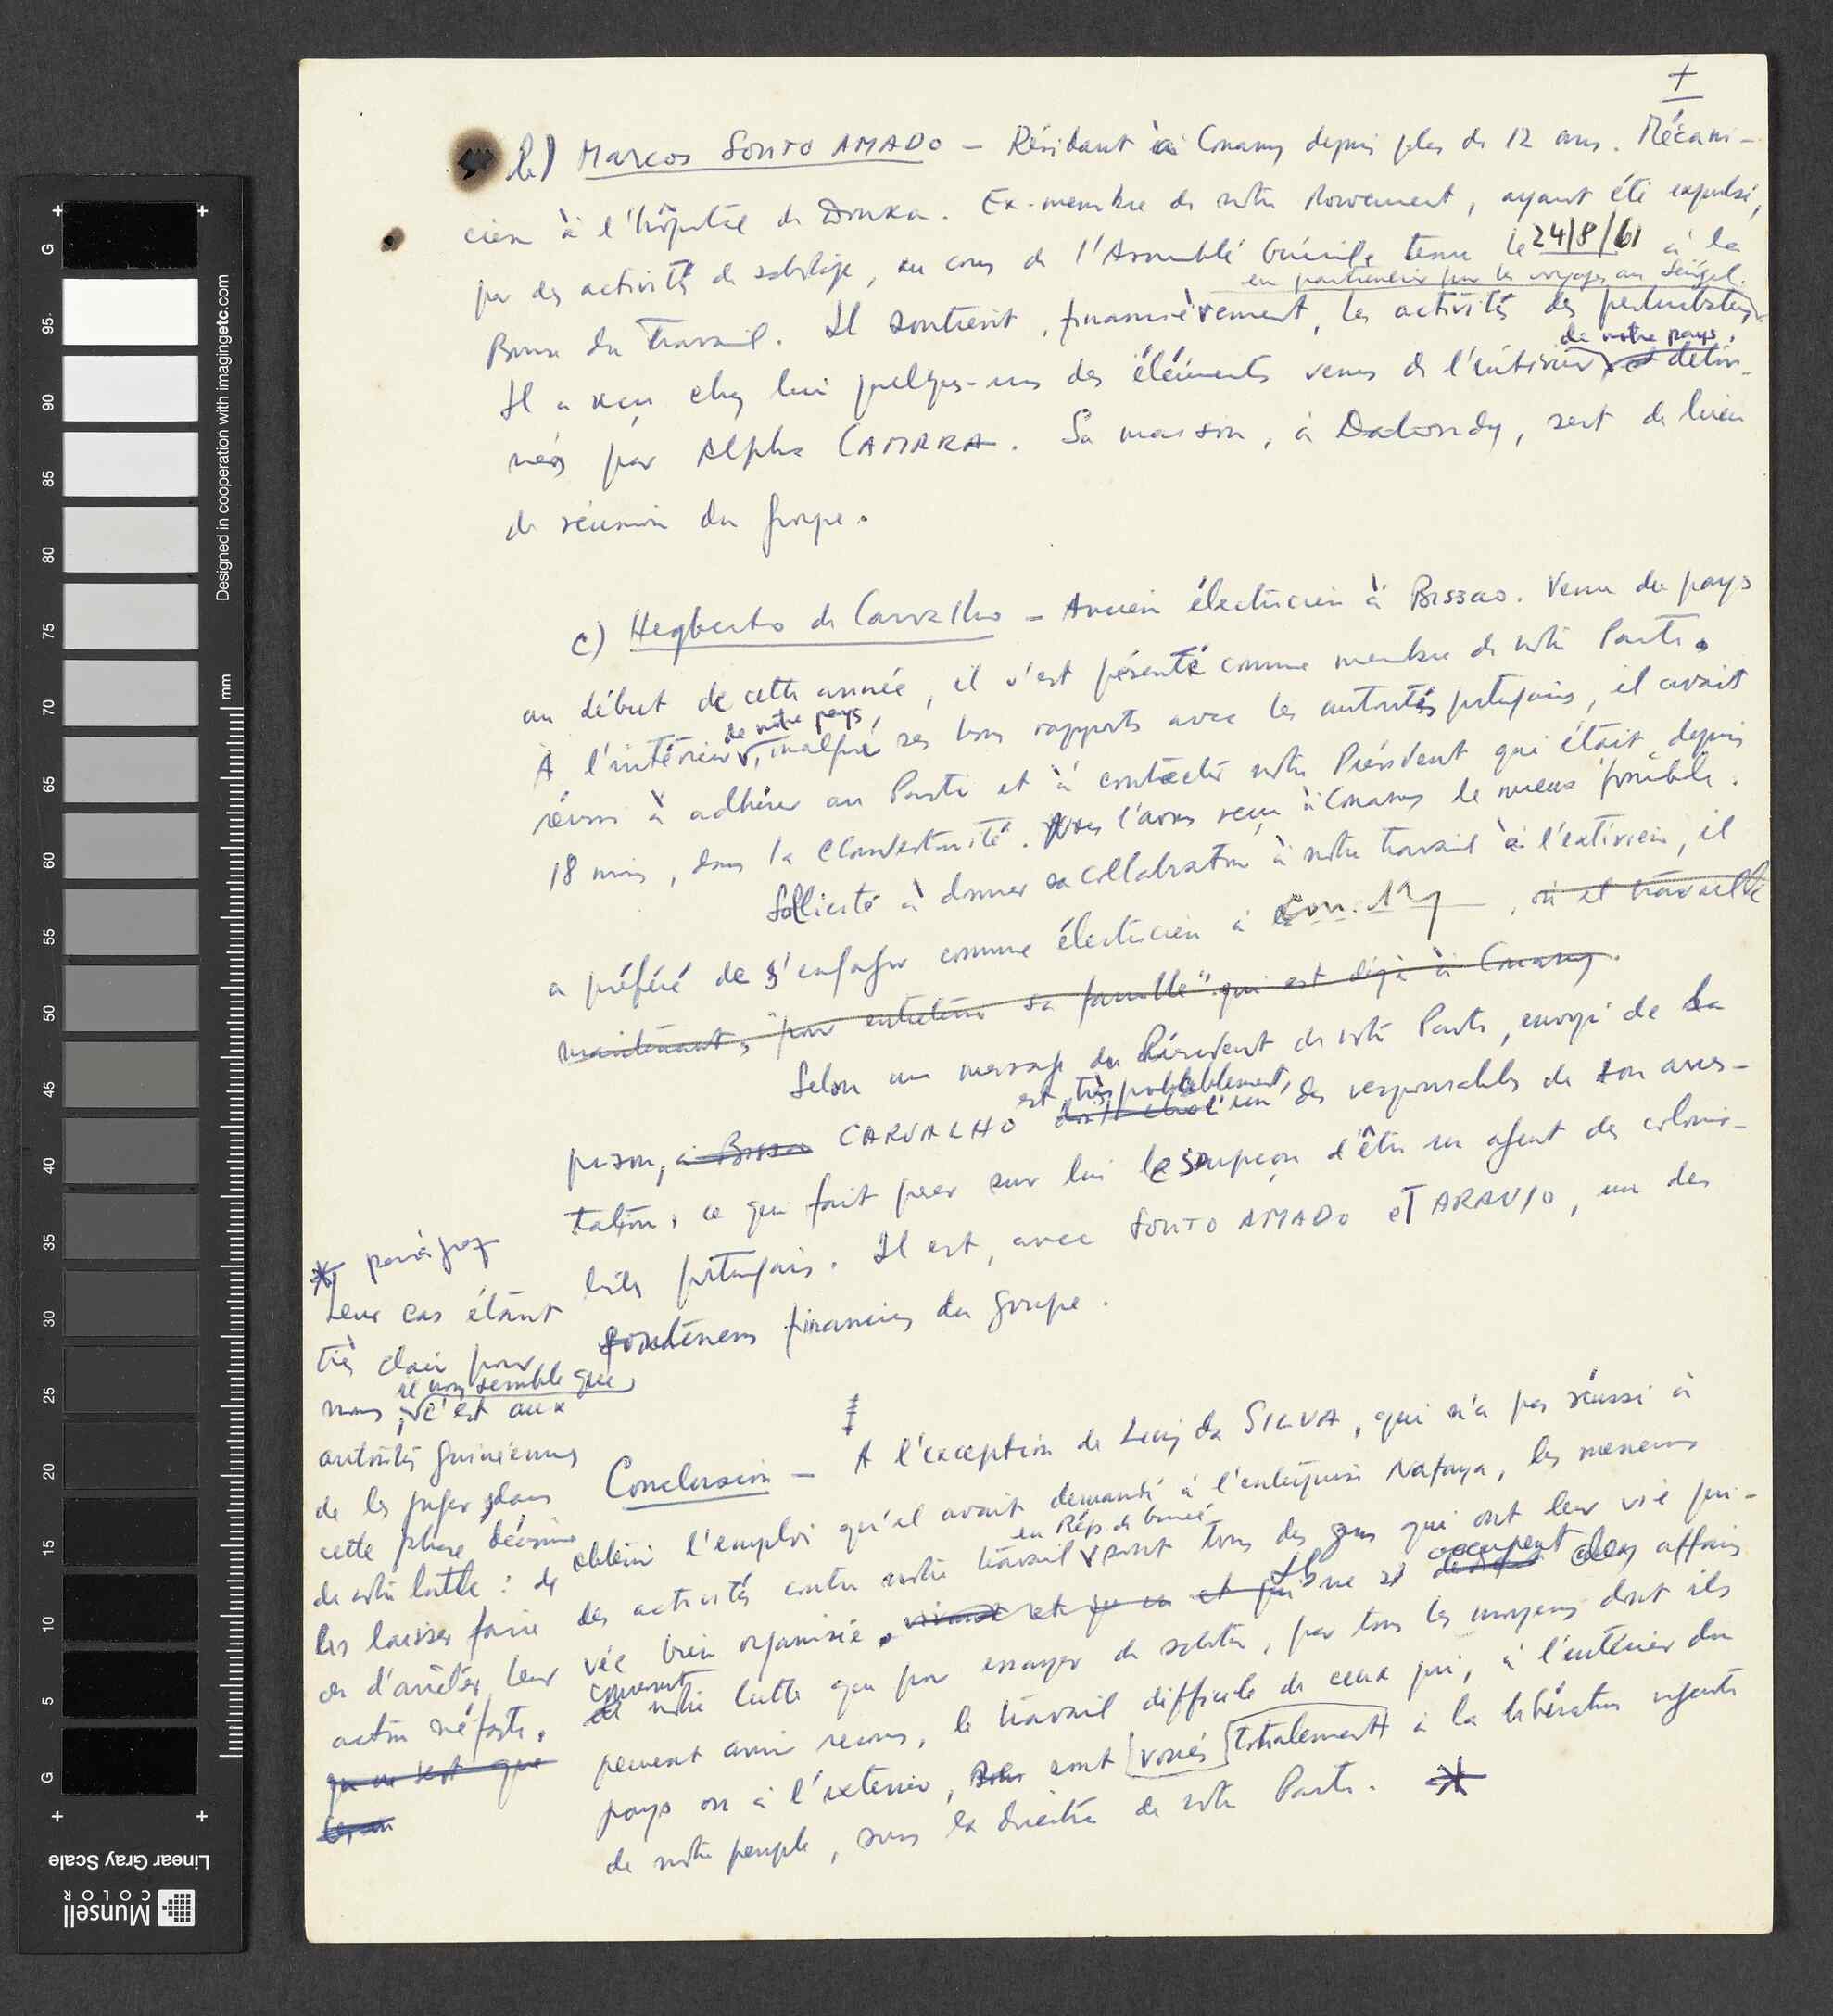 +
b) Marcos SOUTO AMADO – Résidant à Conakry depuis plus de 12 ans. Mécani-
cien à l'hôpital de Donka. Ex-membre de notre Mouvement, ayant été expulsé,
par des activités de sabotage, au cours de l'Assemblé Générale tenue le 24/8/61 à la
en particulier par les voyages au Sénégal.
Bourse du Travail. Il soutient, financièrement, les activités des perturbateurs.
de notre pays,
Il a reçu chez lui quelques-uns des éléments venus de l'intérieur et détour-
nés par Alpha CAMARA. Sa maison, à Dabondy, sert de lieu
de réunion du groupe.
c) Hegberto de Carvalho – Ancien électricien à Bissao. Venu du pays
au début de cette année, il s'est présenté comme membre de notre Parti.
de notre pays,
À l'intérieur, malgré ses bons rapports avec les autorités portugaises, il avait
réussi à adhérer au Parti et à contacter notre Président qui était, depuis
18 mois, dans la clandestinité. Nous l'avons reçu à Conakry le mieux possible.
Sollicité à donner sa collaboration à notre travail à l'extérieur, il
a préféré de s'engager comme électricien à , où et travaille
maintenant, "pour entretenir sa famille" qui est déjà à Conakry.
Selon un message du Président de notre Parti, envoyé de la
est très probablement,
prison, à Bissao CARVALHO l'un des responsables de son arres-
tation, ce qui fait peser sur lui le soupçon d'être un agent des colonia-
listes portugais. Il est, avec SOUTO AMADO et ARAUJO, un des
souteneurs financiers du groupe.
Conclusion – A l'exception de Luiz da SILVA, qui n'a pas réussi à
obtenir l'emploi qu'il avait demandé à l'entreprise Nafaya, les meneurs
en Rép. de Guinée
des activités contre notre travail sont tous des gens qui ont leur vie pri-
vée bien organisée. et qui Ils ne s' occupent des affaires
concernant
de notre lutte que pour essayer de saboter, par tous les moyens dont ils
peuvent avoir recours, le travail difficile de ceux qui, à l'intérieur du
pays ou à l'exterieur, sont voués totalement à la libération urgente
de notre peuple, sous la direction de notre Parti. *
*
Leur cas étant
très clair pour
il nous semble que
nous, c'est aux
autorités guinéennes
de les juger dans
cette phase décisive
de notre lutte : de
les laisser faire
ou d'arrêter leur
action néfaste.
que ce soit que